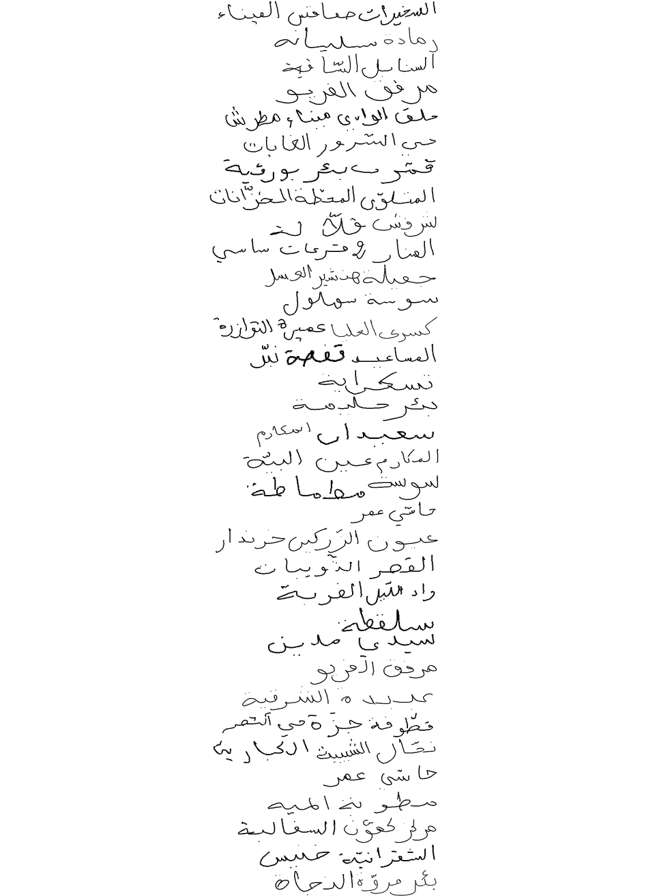 السخيرات صفاقس الميناء
رمادة سليمانه
السنابل الشافية
مرفق الفريو
حلق الوادي ميناء مطرش
حي السرور الغابات
قمرت بئر بورقبة
المتلوي المحطة الخزانات
شربش قلّالة
المنار 9 قريعات ساسي
جميلة هنشير العسل
سوسة سهلول
كسرى العليا عميرة التوازرة
المساعيد قفصة نبّر
تسكراية
بئر حليمة
سعيدان المكارم
المكارم عين البيّة
سوسة مطماطة
حاشي عمر
عيون الزركين خزندار
القصر الذويبات
واد الليل الغريبة
سلقطة
سيدي مدين
مرفق الفريو
عديدة الشرقية
قطّوفة حزّة حي القصر
نقّال الشبيبة الكبارية
حاشي عمر
مطوية المية
مركز كعوّن السفالية
الشقرانيّة خنيس
بئر مروّة الدخان